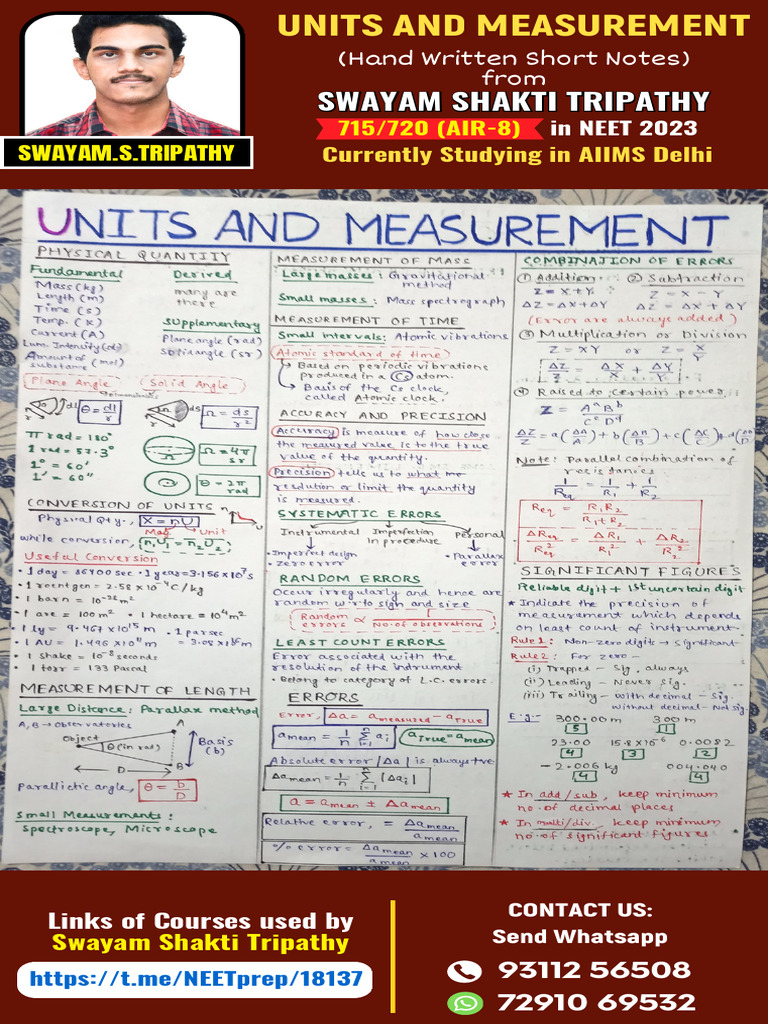 UNITS AND MEASUREMENT
(Hand Written Short Notes)
from
SWAYAM SHAKTI TRIPATHY
715/720 (AIR-8) in NEET 2023
Currently Studying in AIIMS Delhi
SWAYAM.S.TRIPATHY
UNITS AND MEASUREMENT
PHYSICAL QUANTITY
Fundamental
Mass (kg)
Length (m)
Time (s)
Temp. (K)
Current (A)
Lum. Intensity (cd)
Amount of
substance (mol)
Derived
many are
there
Supplementary
Plane angle (rad)
Solid angle (sr)
Plane Angle
Solid Angle
dl
θ = dl/r
ds
Ω = ds/r²
π rad = 180°
1 rad = 57.3°
1° = 60'
1' = 60"
Ω = 4π
sr
θ = 2π
rad
CONVERSION OF UNITS
Physical Qty., X = nU
Mag. Unit
while conversion, n₁U₁ = n₂U₂
Useful Conversion
• 1 day = 86400 sec • 1 year = 3.156×10⁷s
• 1 roentgen = 2.58 × 10⁻⁴ C/kg
• 1 barn = 10⁻²⁸ m²
• 1 are = 100m² • 1 hectare = 10⁴m²
• 1 ly = 9.467×10¹⁵ m
• 1 AU = 1.496 ×10¹¹ m
• 1 parsec
= 3.08 ×10¹⁶m
• 1 Shake = 10⁻⁸ seconds
• 1 torr = 133 Pascal
MEASUREMENT OF LENGTH
Large Distance: Parallax method
A, B → Observatories
A
Object
θ (in rad)
Basis
(b)
D
B
Parallactic angle, θ = b/D
Small Measurements:
Spectroscope, Microscope
MEASUREMENT OF MASS
Large masses: Gravitational
method
Small masses: Mass spectrograph
MEASUREMENT OF TIME
Small intervals: Atomic vibrations
Atomic standard of time
Based on periodic vibrations
produced in a Cs atom.
Basis of the Cs clock,
called Atomic clock.
ACCURACY AND PRECISION
Accuracy is measure of how close
the measured value is to the true
value of the quantity.
Precision tells us to what
resolution or limit the quantity
is measured.
SYSTEMATIC ERRORS
Instrumental Imperfection Personal
in procedure
• Imperfect design
• Zero error
• Parallax
error
RANDOM ERRORS
Occur irregularly and hence are
random w.r.to sign and size
Random
errors ∝ 1/no. of observations
LEAST COUNT ERRORS
Error associated with the
resolution of the instrument
• Belong to category of L.C. errors.
ERRORS
Error, Δa = a measured - a True
a mean = 1/n Σ aᵢ
a True = a mean
Absolute error |Δa| is always +ve
Δa mean = 1/n Σ |Δaᵢ|
a = a mean ± Δa mean
Relative error, = Δa mean/a mean
% error = Δa mean/a mean × 100
COMBINATION OF ERRORS
① Addition
Z = X + Y
ΔZ = ΔX + ΔY
② Subtraction
Z = X - Y
ΔZ = ΔX + ΔY
(Error are always added)
③ Multiplication or Division
Z = XY or Z = X/Y
ΔZ/Z = ΔX/X + ΔY/Y
④ Raised to certain power
Z = AᵃBᵇ/CᶜDᵈ
ΔZ/Z = a(ΔA/A) + b(ΔB/B) + c(ΔC/C) + d(ΔD/D)
Note: Parallel combination of
resistances
1/Req = 1/R₁ + 1/R₂
Req = R₁R₂/R₁+R₂
ΔReq/R²eq = ΔR₁/R₁² + ΔR₂/R₂²
SIGNIFICANT FIGURES
Reliable digit + 1st uncertain digit
★ Indicate the precision of
measurement which depends
on least count of instrument.
Rule 1: Non-zero digits → significant
Rule 2: For zero -
(i) Trapped - Sig. always
(ii) Leading - Never Sig.
(iii) Trailing - with decimal - Sig.
without decimal - Not sig.
E.g.-
300.00m 300 m
5 1
23.00 15.8×10⁻⁶ 0.0082
4 3 2
-2.006 kg 04.040
4 4
★ In add/sub, keep minimum
no. of decimal places
★ In multi/div., keep minimum
no. of significant figures
Links of Courses used by
Swayam Shakti Tripathy
https://t.me/NEETprep/18137
CONTACT US:
Send Whatsapp
93112 56508
72910 69532